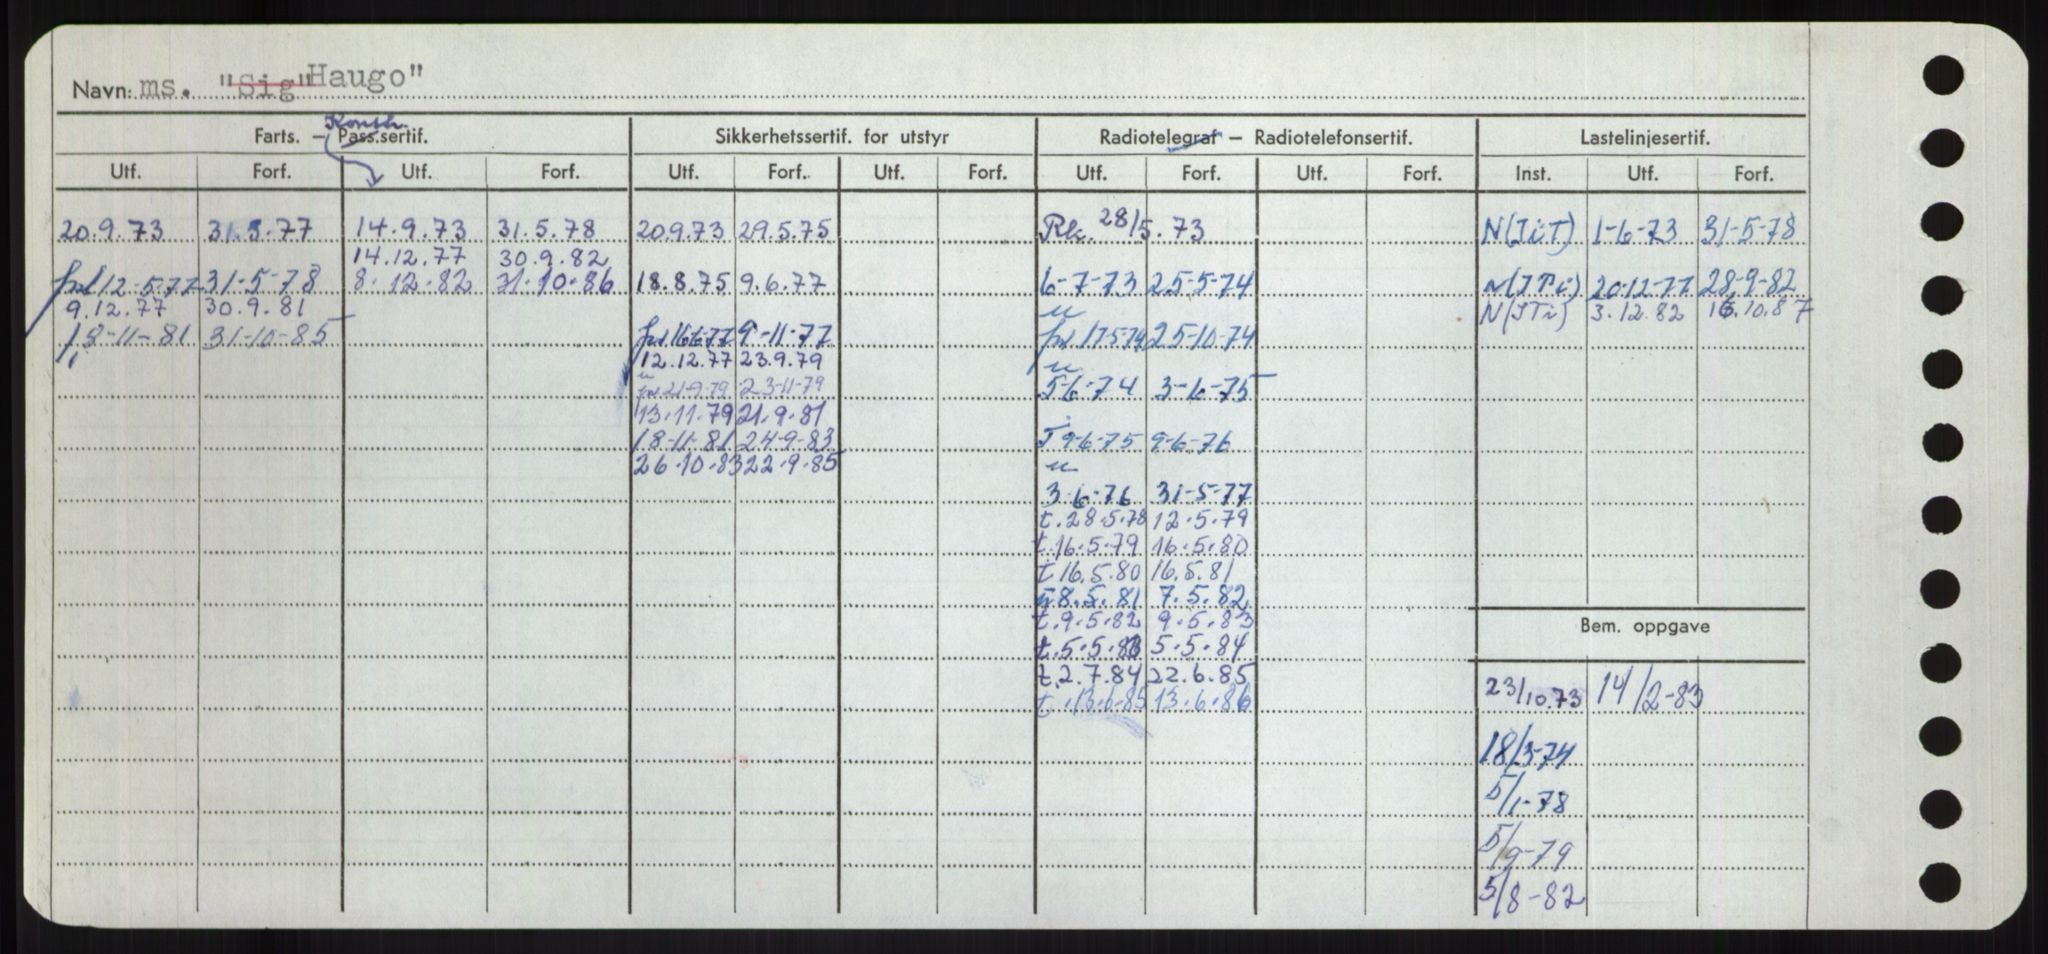 Navn: ms. "Sig" Haugo"
Konstr.
Farts. – Pass.sertif. Sikkerhetssertif. for utstyr Radiotelegraf – Radiotelefonsertif. Lastelinjesertif.
Utf. Forf. Utf. Forf. Utf. Forf. Utf. Forf. Utf. Forf. Utf. Forf. Inst. Utf. Forf.
20.9.73 31.5.77 14.9.73 31.5.78 20.9.73 29.5.75 Rk. 28/5.73 N(JiT) 1-6-73 31-5-78
14.12.77 30.9.82
frl 12-5-77 31-5-78 8.12.82 31.10.86 18.8.75 9.6.77 6-7-73 25-5-74 N(JTi) 20-12-77 28-9-82
9.12.77 30.9.81 N(JTi) 3.12.82 16.10.87
18-11-81 31-10-85 frl 16-6-77 9-11-77 frl 17-5-74 25-10-74
12.12.77 23.9.79
frl 21-9-79 23-11-79 5-6-74 3-6-75
13.11.79 21.9.81
18-11-81 24-9-83 T 9-6-75 9-6-76
26.10.83 22.9.85
3-6-76 31-5-77
t.28.5.78 12.5.79
t.16.5.79 16.5.80
t 16.5.80 16.5.81
8.5.81 7.5.82
t.9.5.82 9.5.83
Bem. oppgave
t.5.5.83 5.5.84
t.2.7.84 22.6.85
t.13.6.85 13.6.86
23/10.73 14/2-83
18/3-74
5/1-78
5/9-79
5/8-82